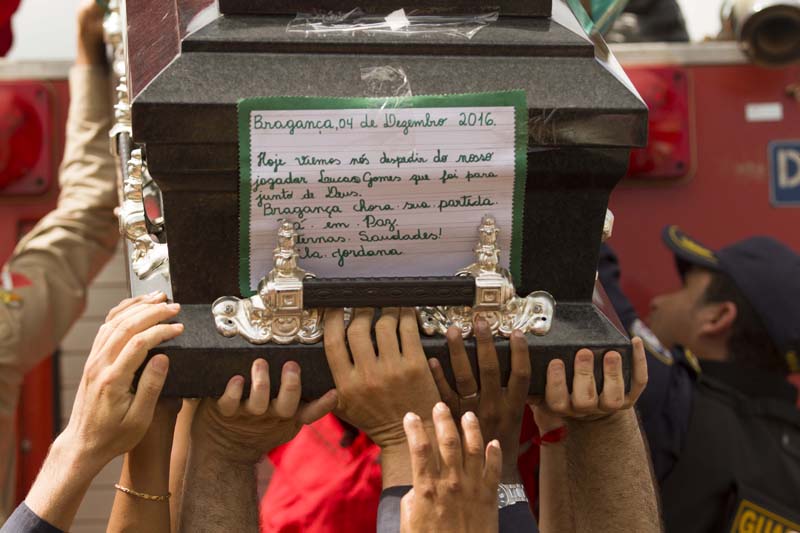 Bragança, 04 de Dezembro 2016.
Hoje viemos nós despedir do nosso
jogador Lucas Gomes que foi para
junto de Deus.
Bragança chora sua partida.
em Paz
ternas Saudades!
Jordana
D
GUA